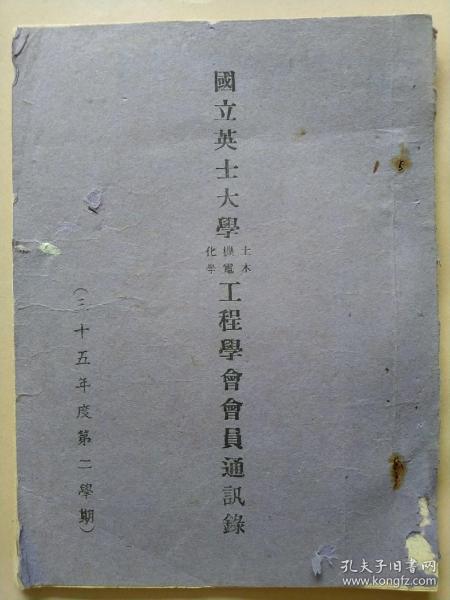 國立英士大學土木機電化學工程學會會員通訊錄
(三十五年度第二學期)
5
孔夫子旧书网
www.kongfz.com